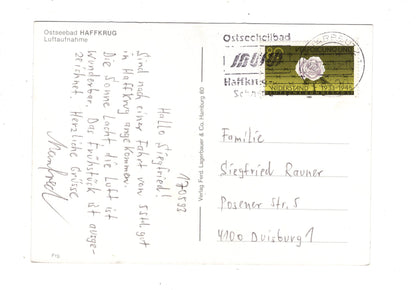 Ostseebad HAFFKRUG
Luftaufnahme
170583
Hallo Siegfried!
Sind nach einer Fahrt von 5 Std gut
in Haffkrug angekommen.
Die Sonne lacht, die Luft ist
wunderbar. Das Frühstück ist ausge-
zeichnet. Herzliche Grüsse
Manfred
Verlag Ferd. Lagerbauer & Co. Hamburg 60
Ostseeheilbad
Haffkrug
80
VERFOLGUNG
WIDERSTAND 1933-1945
Familie
Siegfried Rauner
Posener Str. 5
4100 Duisburg 1